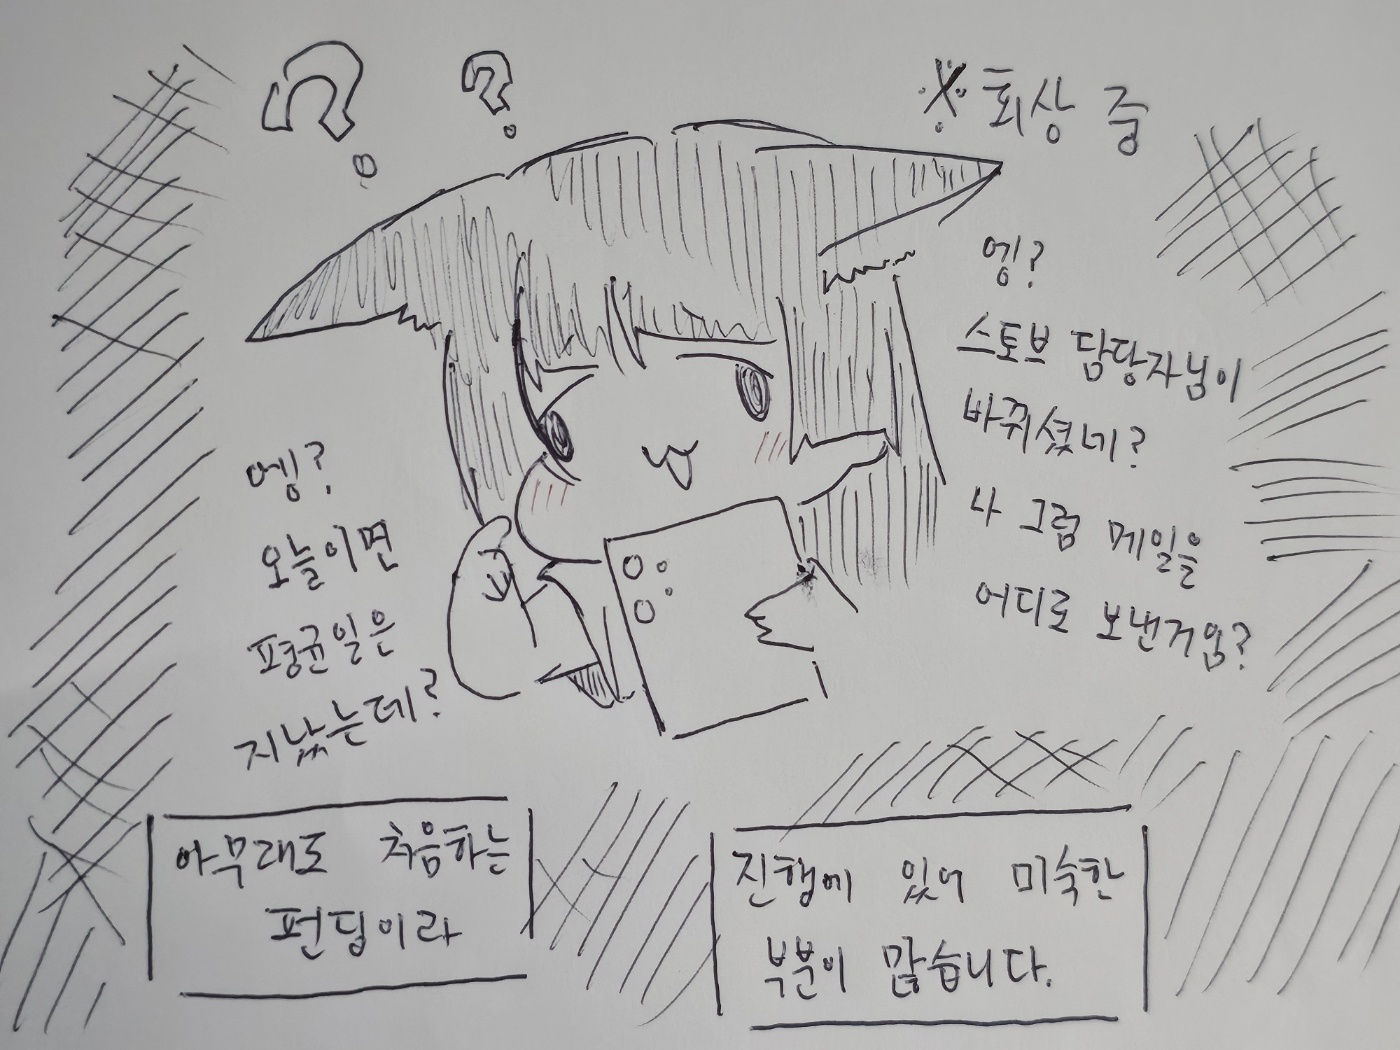 ? ?
※ 회상 중
엥?
스토브 담당자님이
바뀌셨네?
나 그럼 메일을
어디로 보낸거임?
엥?
오늘이면
평균일은
지났는데?
아무래도 처음하는
펀딩이라
진행에 있어 미숙한
부분이 많습니다.